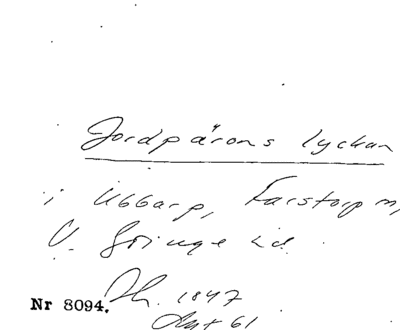 Jordpärons lyckan
i Ubbarp, Farstorp m,
V. Göinge hd.
Nr 8094. Th. 1847
Ant 61